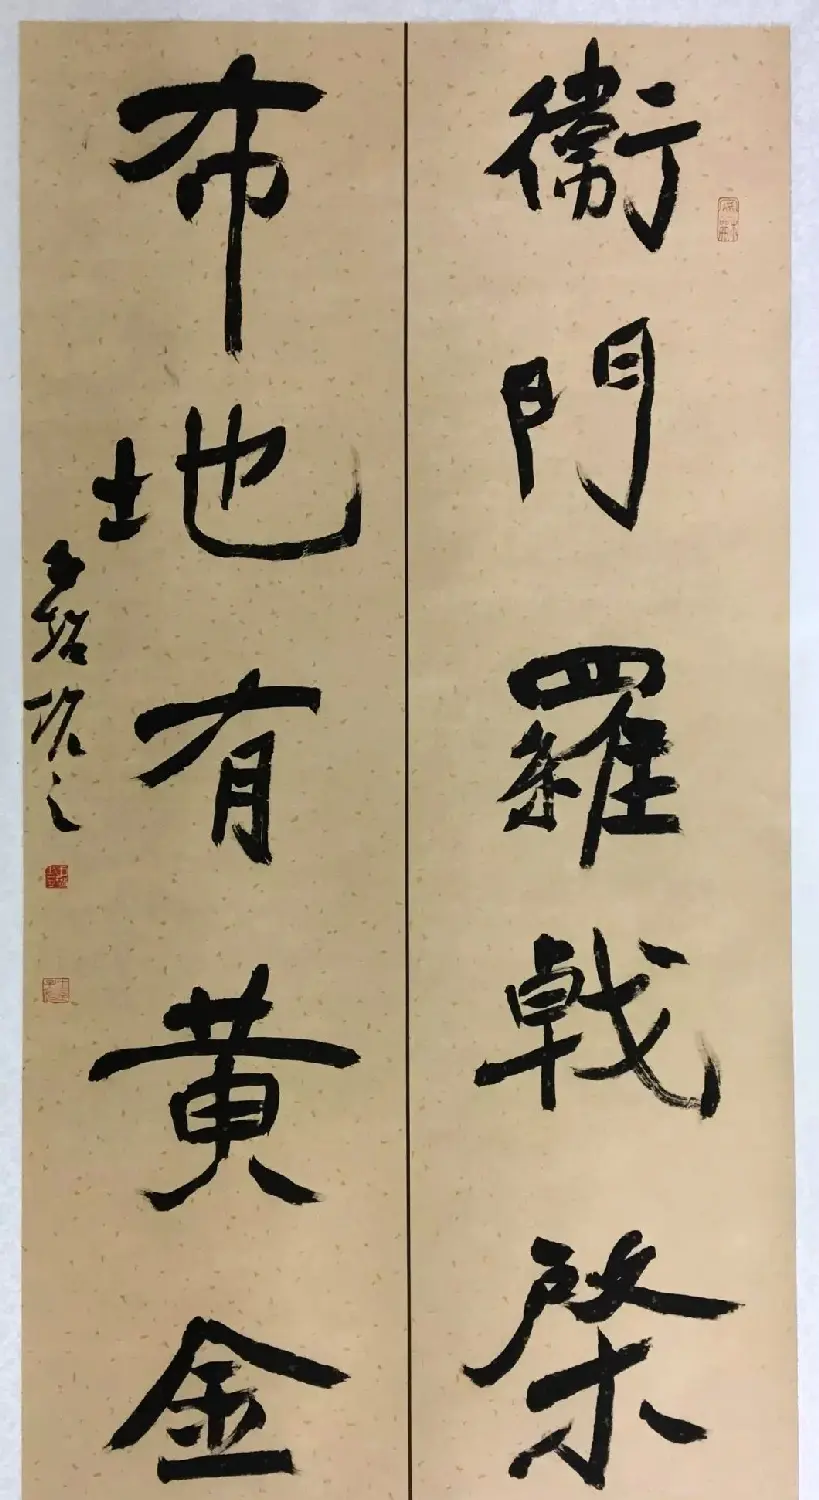 衞門羅戟棨
布地有黄金